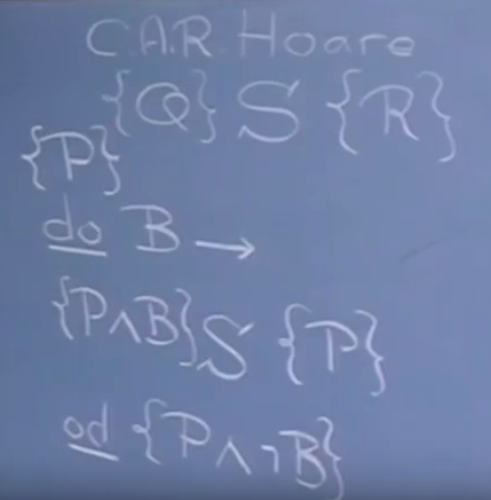 C.A.R. Hoare
{Q} S {R}
{P}
do B →
{P∧B} S {P}
od {P∧¬B}